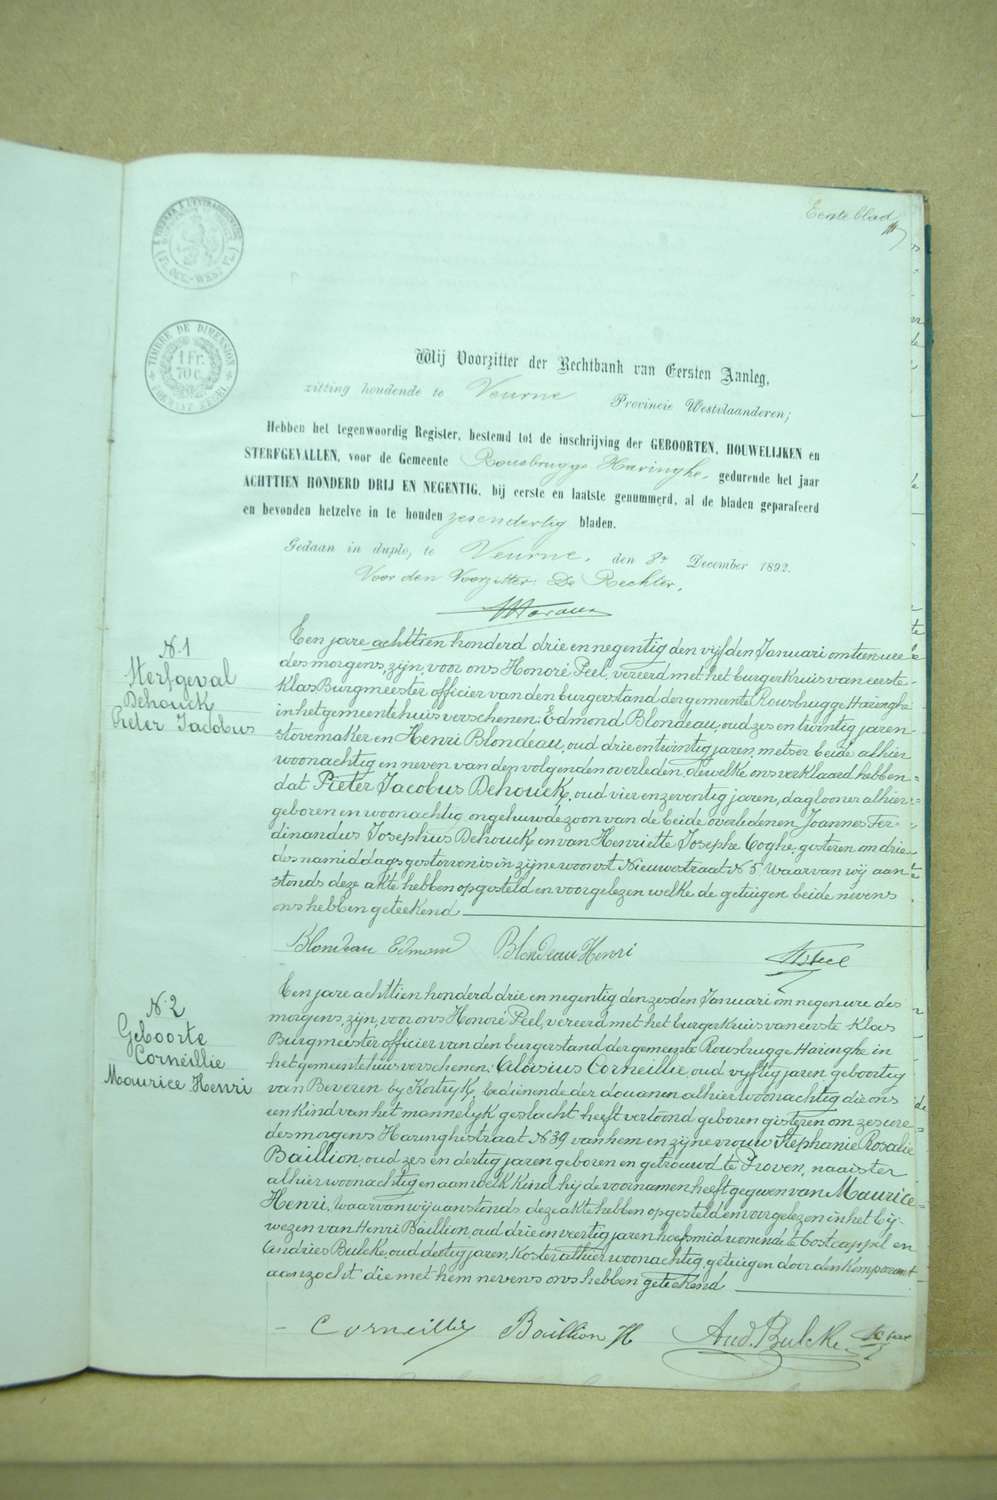 Eerste blad
TIMBRE DE DIMENSION
1 Fr. 70 c.
Wij Voorzitter der Rechtbank van Eersten Aanleg,
zitting houdende te Veurne Provincie Westvlaanderen;
Hebben het tegenwoordig Register, bestemd tot de inschrijving der GEBOORTEN, HOUWELIJKEN en
STERFGEVALLEN, voor de Gemeente Rousbrugge Haringhe, gedurende het jaar
ACHTTIEN HONDERD DRIJ EN NEGENTIG, bij eerste en laatste genummerd, al de bladen geparafeerd
en bevonden hetzelve in te houden zesendertig bladen.
Gedaan in duplo, te Veurne, den 8n December 1892.
Voor den Voorzitter: De Rechter,
N. 1
Sterfgeval
Dehouck
Pieter Jacobus
Een jare achttien honderd drie en negentig den vijfden Januari om tien ure
des morgens, zijn, voor ons Honoré Peel, vereerd met het burgerkruis van eerste
klas Burgmeester officier van den burgerstand der gemeente Rousbrugge Haringhe
in het gemeentehuis verschenen: Edmond Blondeau, oud zes en twintig jaren
stovemaker en Henri Blondeau, oud drie en twintig jaren, metser beide alhier
woonachtig en neven van den volgenden overleden, dewelke ons verklaard hebben
dat Pieter Jacobus Dehouck, oud vier en zeventig jaren, daglooner alhier
geboren en woonachtig ongehuwde zoon van de beide overledenen Joannes Fer-
dinandus Josephus Dehouck en van Henriette Josephe Coghe, gisteren om drie
des namiddags gestorven is in zijne woonst Nieuwstraat N. 5. Waarvan wij aan-
stonds deze akte hebben opgesteld en voorgelezen welke de getuigen beide nevens
ons hebben geteekend
Blondeau Edmond Blondeau Henri Hre Peel
N. 2
Geboorte
Corneillie
Maurice Henri
Een jare achttien honderd drie en negentig den zesden Januari om negen ure des
morgens, zijn, voor ons Honoré Peel, vereerd met het burgerkruis van eerste klas
Burgmeester officier van den burgerstand der gemeente Rousbrugge Haringhe in
het gemeentehuis verschenen: Aloïsius Corneillie, oud vijftig jaren geboortig
van Beveren bij Kortryk, bedienende der douanen alhier woonachtig die ons
een kind van het mannelijk geslacht heeft vertoond geboren gisteren om zes ure
des morgens Haringhestraat N. 39 van hem en zijne vrouw Stephanie Rosalie
Baillion, oud zes en dertig jaren geboren en getrouwd te Proven, naaister
alhier woonachtig en aan welk kind hij de voornamen heeft gegeven van Maurice
Henri, waarvan wij aanstonds deze akte hebben opgesteld en voorgelezen in het bij-
wezen van Henri Baillion, oud drie en veertig jaren hoefsmid wonende te Oostcappel en
Andries Bulcke, oud dertig jaren, Koster alhier woonachtig, getuigen door den Komparant
aanzocht die met hem nevens ons hebben geteekend
Corneillie Baillion H And. Bulcke